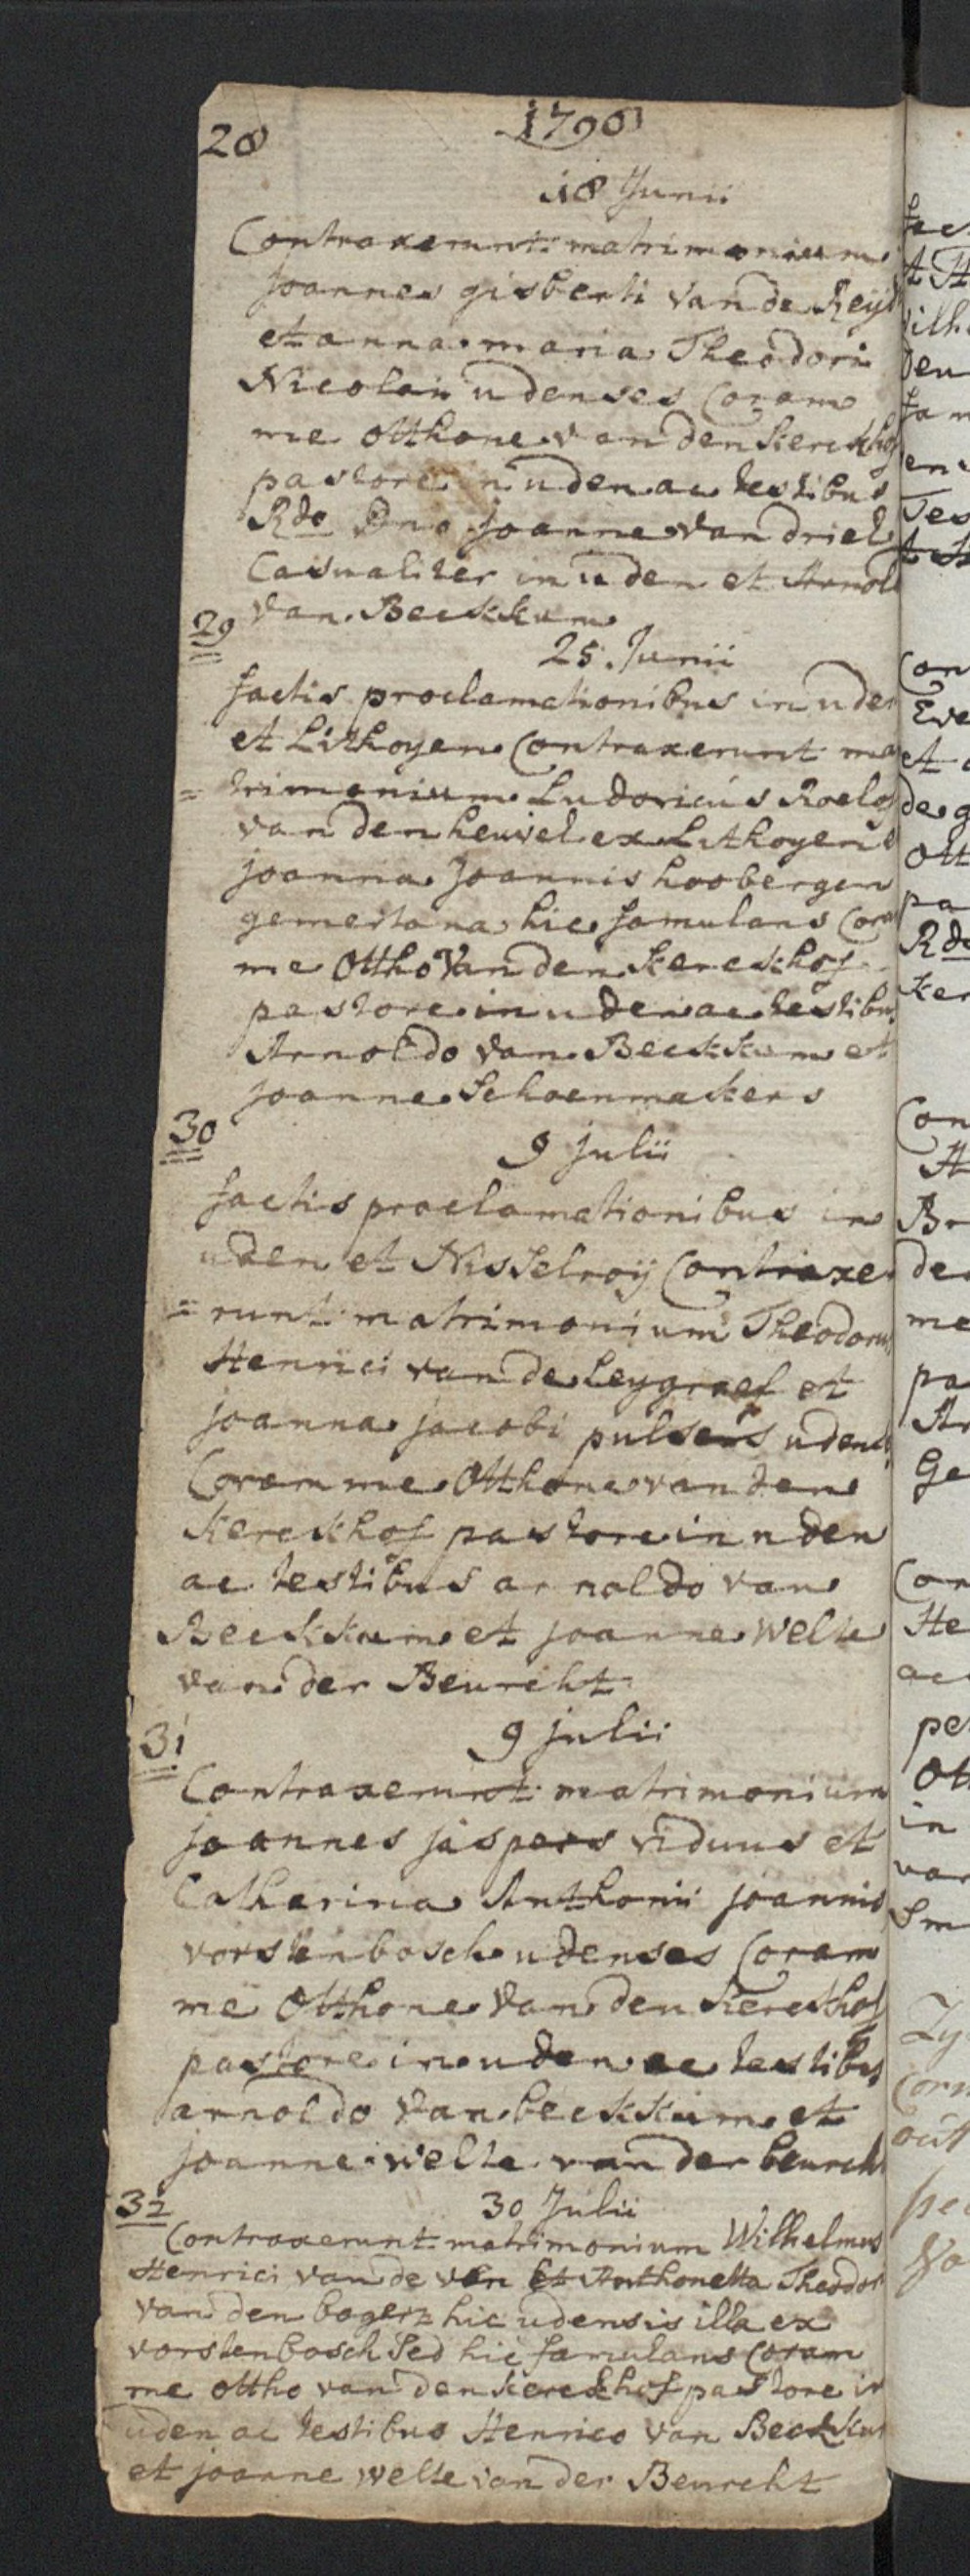 1790
28
18 Junii
Contraxerunt matrimonium
Joannes gisberti van de Reijt
et anna maria Theodori
Nicolai udenses Coram
me Otthone van den kerckhof
pastore in uden ac testibus
Rdo Dno joanne van driel
Casualiter in uden et Arnold
van Beekkum
29
25 Junii
factis proclamationibus in uden
et Lithoyen Contraxerunt ma
= trimonium Ludovicus Roelof
van den heuvel ex Lithoyen e
joanna Joannis hoobergen
gemertana hic famulans Cora
me Ottho Van den kerckhof
pastore in uden ac testibu
Arnoldo van Beekkum et
joanne Schoenmakers
30
9 julii
factis proclamationibus in
uden et Nisselroij Contraxe
= runt matrimonium Theodoru
Henrici van de Leygraef et
joanna jacobi pulsers udens
Coram me Otthone van den
Kerckhof pastore in uden
ac testibus arnoldo van
Beekkum et joanne Welte
van der Beurcht
31
9 julii
Contraxerunt matrimonium
joannes jaspers viduus et
Catharina Anthonii joannis
vorstenbosch udenses Coram
me Otthone van den Kerckhof
pastore in uden ac testibus
arnoldo van beekkum et
joanne welte van der beurch
32
30 Julii
Contraxerunt matrimonium Wilhelmus
Henrici van de ven et Anthonetta Theodor
van den bogert hic udensis illa ex
vorstenbosch sed hic famulans Coram
me ottho van den kerckhof pastore in
uden ac testibus Henrico van Beekkum
et joanne welte van der Beurcht